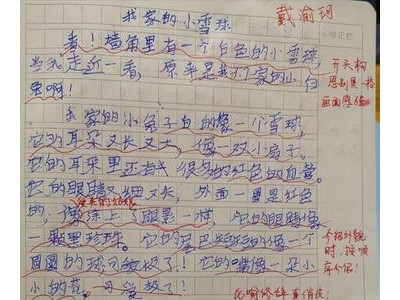 我家的小雪球
戴渝珂
看！墙角里有一个白色的小雪球，
当我走近一看，原来是我们家的小白
兔啊！
开头构
思别具一格
画面感强
我家的小兔子白的像一个雪球，
它的耳朵又长又大，像一双小扇子。
它的耳朵里还有很多的红色的血管。
它的眼睛又细又长，外面一圈是红色
的，像涂上了眼影一样，它的眼睛像
一颗黑珍珠。它的尾巴像一个
圆圆的球可爱极了！它的嘴像一朵小
小的花，可爱极了！
介绍外貌
时，按顺
序介绍！
比喻修辞真俏皮